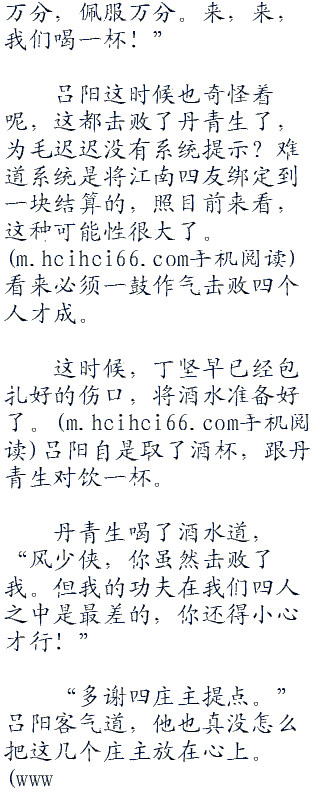 万分，佩服万分。来，来，
我们喝一杯！”
吕阳这时候也奇怪着
呢，这都击败了丹青生了，
为毛迟迟没有系统提示？难
道系统是将江南四友绑定到
一块结算的，照目前来看，
这种可能性很大了。
(m.hcihci66.com手机阅读)
看来必须一鼓作气击败四个
人才成。
这时候，丁坚早已经包
扎好的伤口，将酒水准备好
了。(m.hcihci66.com手机阅
读)吕阳自是取了酒杯，跟丹
青生对饮一杯。
丹青生喝了酒水道，
“风少侠，你虽然击败了
我。但我的功夫在我们四人
之中是最差的，你还得小心
才行！”
“多谢四庄主提点。”
吕阳客气道，他也真没怎么
把这几个庄主放在心上。
(www